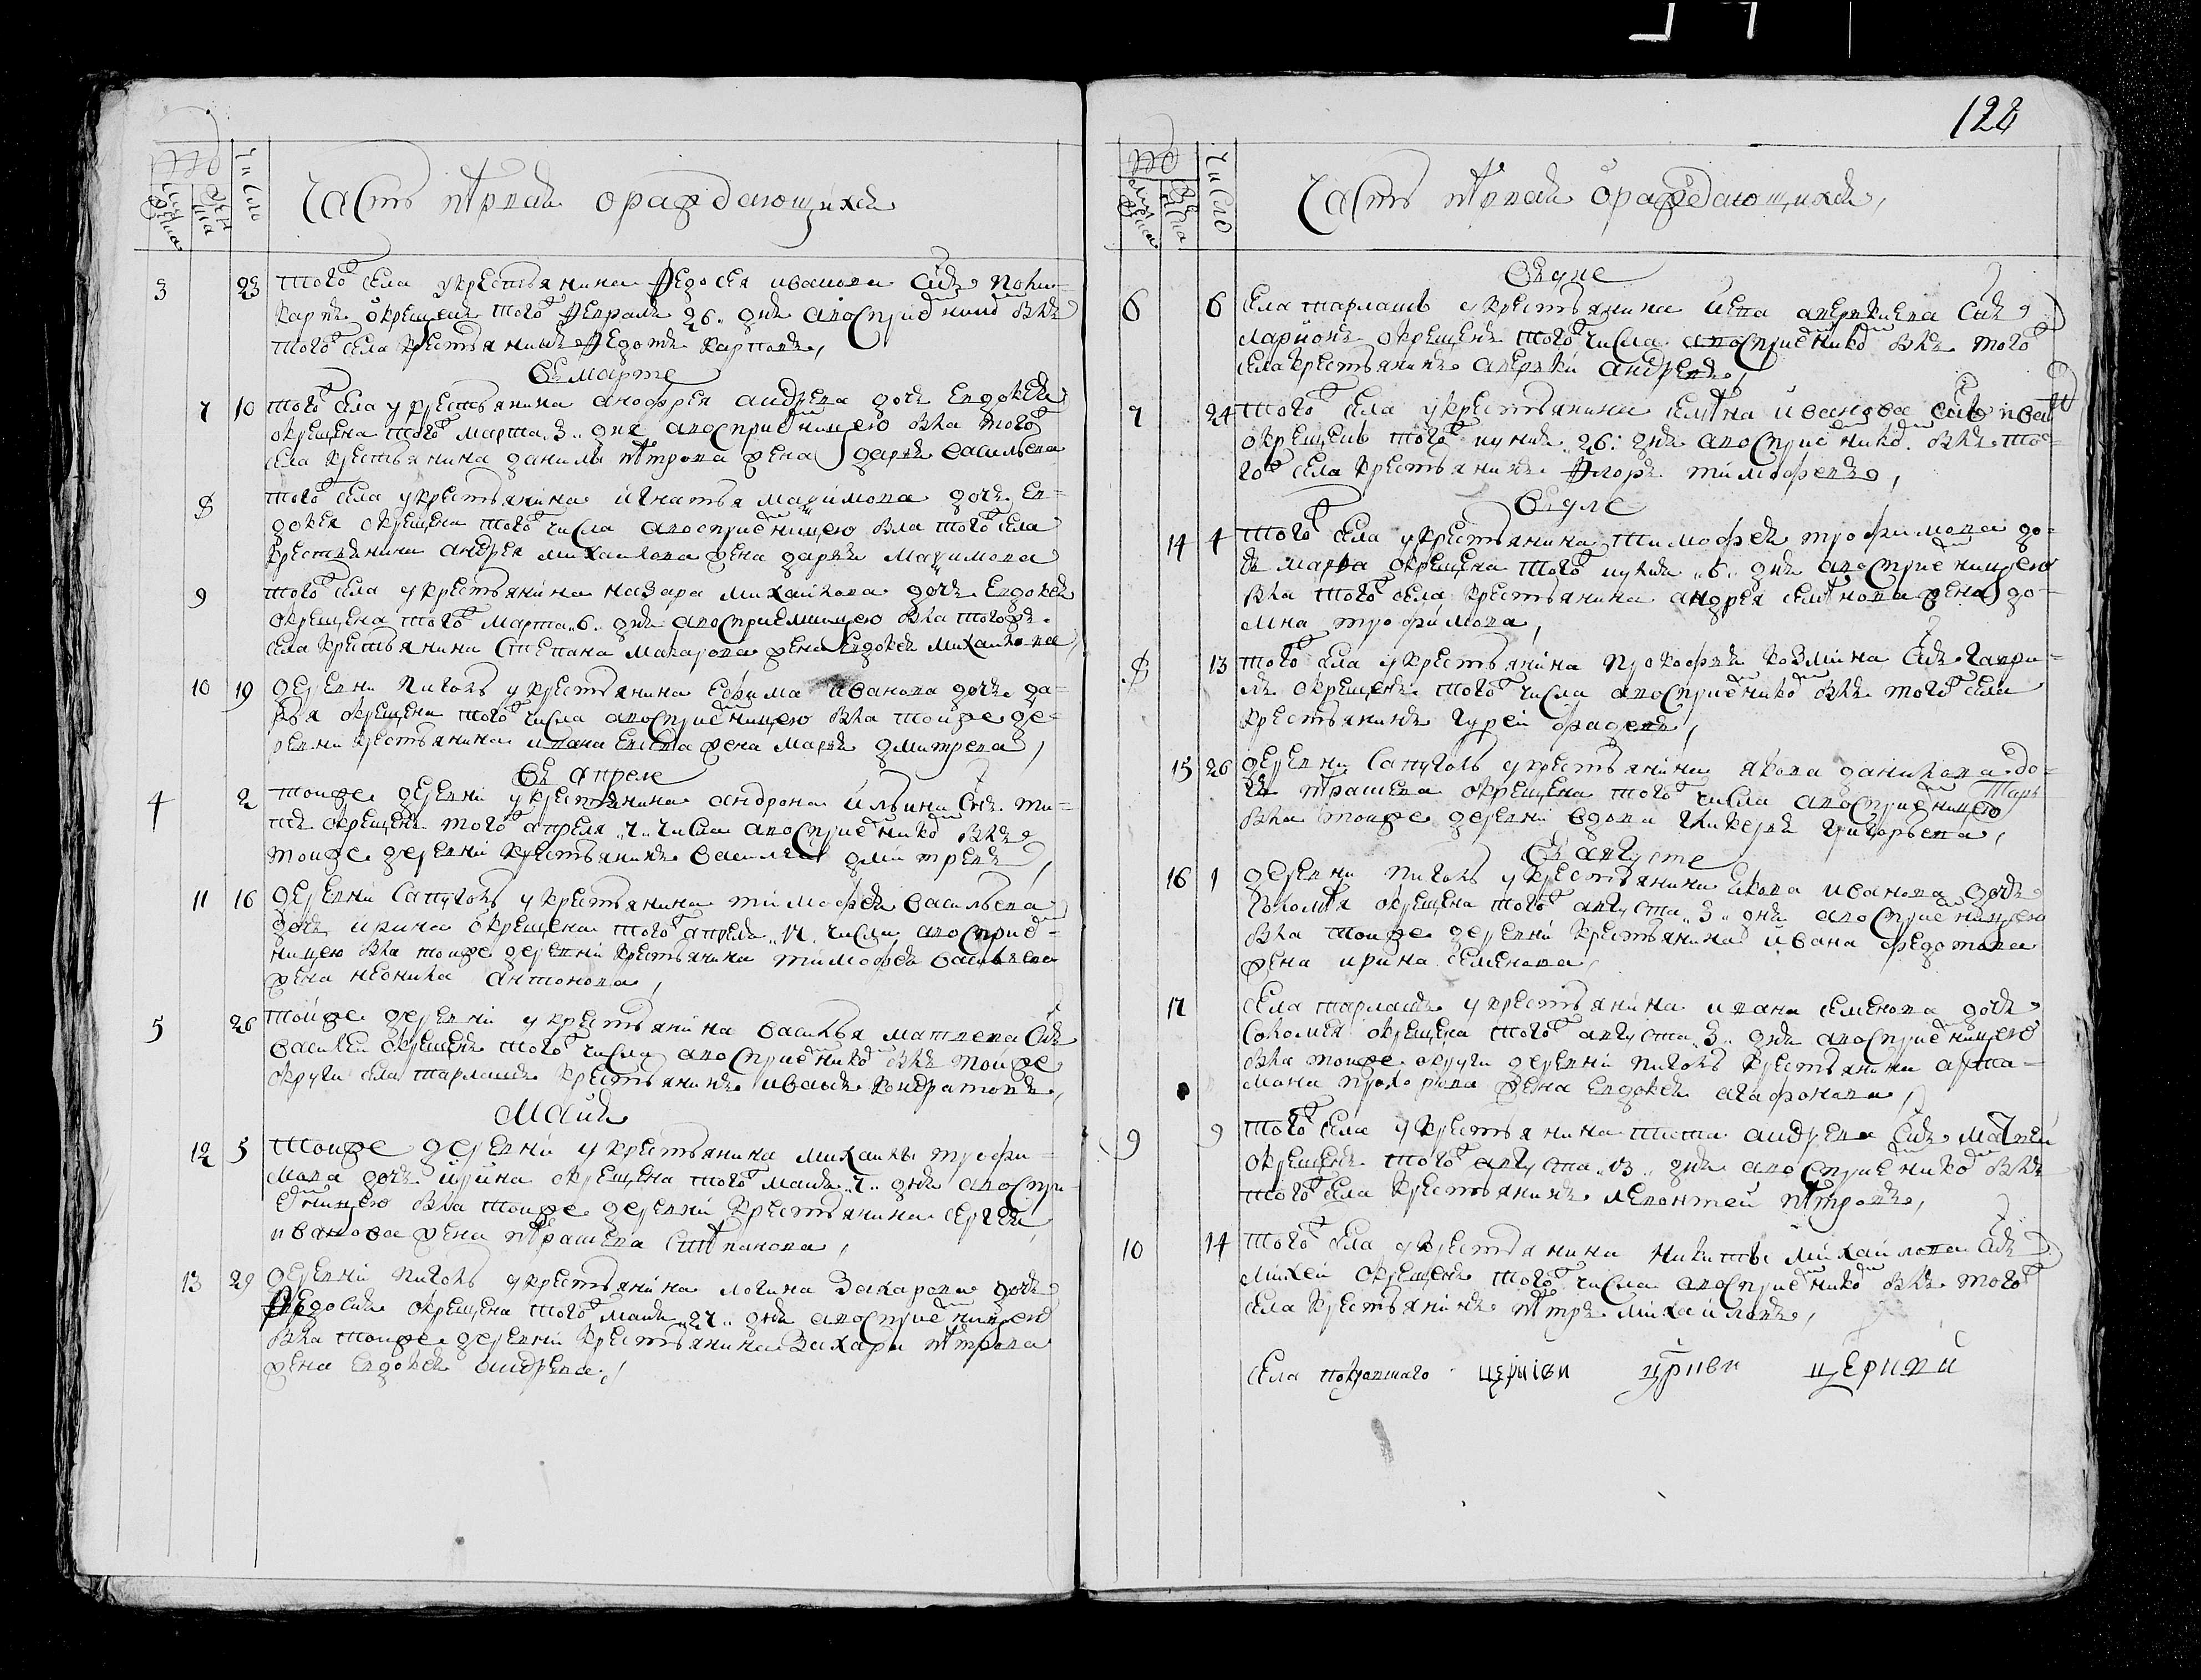 Число
Часть первая о раждающихся
3 23 того ж села у крестьянина Федосея иванова сынъ поли
карпъ окрещенъ того ж февраля 26 дня воспрiемникомъ былъ
того ж села крестьянинъ Федотъ карповъ
Въ марте
7 10 того ж села у крестьянина анофрея андреева дочь евдокея
окрещена того ж марта 3 дня воспрiемницею была того ж
села крестьянина данилы петрова жена дарья васильева
8 того ж села у крестьянина игнатья маѯимова дочь ев=
докея окрещена того ж числа воспрiемницею была того ж села
крестьянина андрея михаилова жена дарья маѯимова
9 того ж села у крестьянина назара михаилова дочь евдокея
окрещена того ж марта 6 дня воспрiемницею была того ж
села крестьянина степана макарова жена евдокея михаилова
10 19 деревни пичолъ у крестьянина ефима иванова дочь да=
рья окрещена того ж числа воспрiемницею была тоиже де=
ревни крестьянина ивана жена марья дмитрева
Въ апреле
4 2 тоиже деревнi у крестьянина андрона ильина сынъ ти=
тъ окрещенъ того ж апреля 7 числа воспрiемникомъ былъ
тоиже деревнi крестьянинъ василеи дмiтревъ
11 16 деревнi сапуголъ у крестьянина тiмофея васильева
дочь ирина окрещена того ж апреля 17 числа воспрiем=
ницею была тоиже деревнi крестьянина тимофея васильева
жена неонила антонова
5 26 тоиже деревнi у крестьянiна василья матвеева сынъ
василеи окрещенъ того ж числа воспрiемникомъ былъ тоиже
округи села тарлашъ крестьянинъ иванъ кондратовъ
Маия
12 5 тоиже деревнi у крестьянина михаилы трофи=
мова дочь ирина окрещена того ж маия 7 дня воспрi
емницею была тоиже деревнi крестьянина сергея
иванова жена перашева степанова
13 29 деревнi пичолъ у крестьянiна логина захарова дочь
Федосья окрещена того ж маия 27 дня воспрiемницею
была тоиже деревнi крестьянина захара петрова
жена евдокея андреева
128
Число
Часть первая о раждающихся
Въ июне
6 6 села тарлашъ у крестьянина аверкиева сынъ
ларионъ окрещенъ того ж числа воспрiемникомъ былъ того ж
села крестьянинъ аверкiи андреевъ
7 24 того ж села у крестьянина иванова сынъ иванъ
окрещенъ того ж иуния 26 дня воспрiемникомъ былъ то=
го ж села крестьянинъ Флоръ тiмофеевъ
Въ июле
14 4 того ж села у крестьянина тимофея трофимова до=
чь марфа окрещена того ж иулия 6 дня воспрiемницею
была того ж села крестьянина андрея семенова жена до=
мна трофiмова
8 13 того ж села у крестьянiна прокофья козмiна сынъ гаври=
лъ окрещенъ того ж числа воспрiемникомъ былъ того ж села
крестьянинъ гурей фадеевъ
15 26 деревни сапуголъ у крестьянiна якова данилова до=
чь перашева окрещена того ж числа воспрiемницею
была тоиже деревнi вдова гликерья григорьева
Въ августе
16 1 деревни пичолъ у крестьянина якова иванова дочь
соломея окрещена того ж августа 3 дня воспрiемницею
была тоиже деревнi крестьянина ивана федотова
жена ирина семенова
17 села тарлашъ у крестьянiна ивана семенова дочь
соломея окрещена того ж августа 3 дня воспрiемницею
была тоиже округи деревнi пичолъ крестьянина арта=
мона прохорова жена евдокея агафонова
9 9 того ж села у крестьянина тита андреева сынъ матвеи
окрещенъ того ж августа 13 дня воспрiемникомъ былъ
того ж села крестьянинъ леонтеи петровъ
10 14 того ж села у крестьянина никиты мiхаилова сынъ
мiхеи окрещенъ того ж числа воспрiемникомъ былъ того ж
села крестьянiнъ петръ михаиловъ
села покровшаго церкви